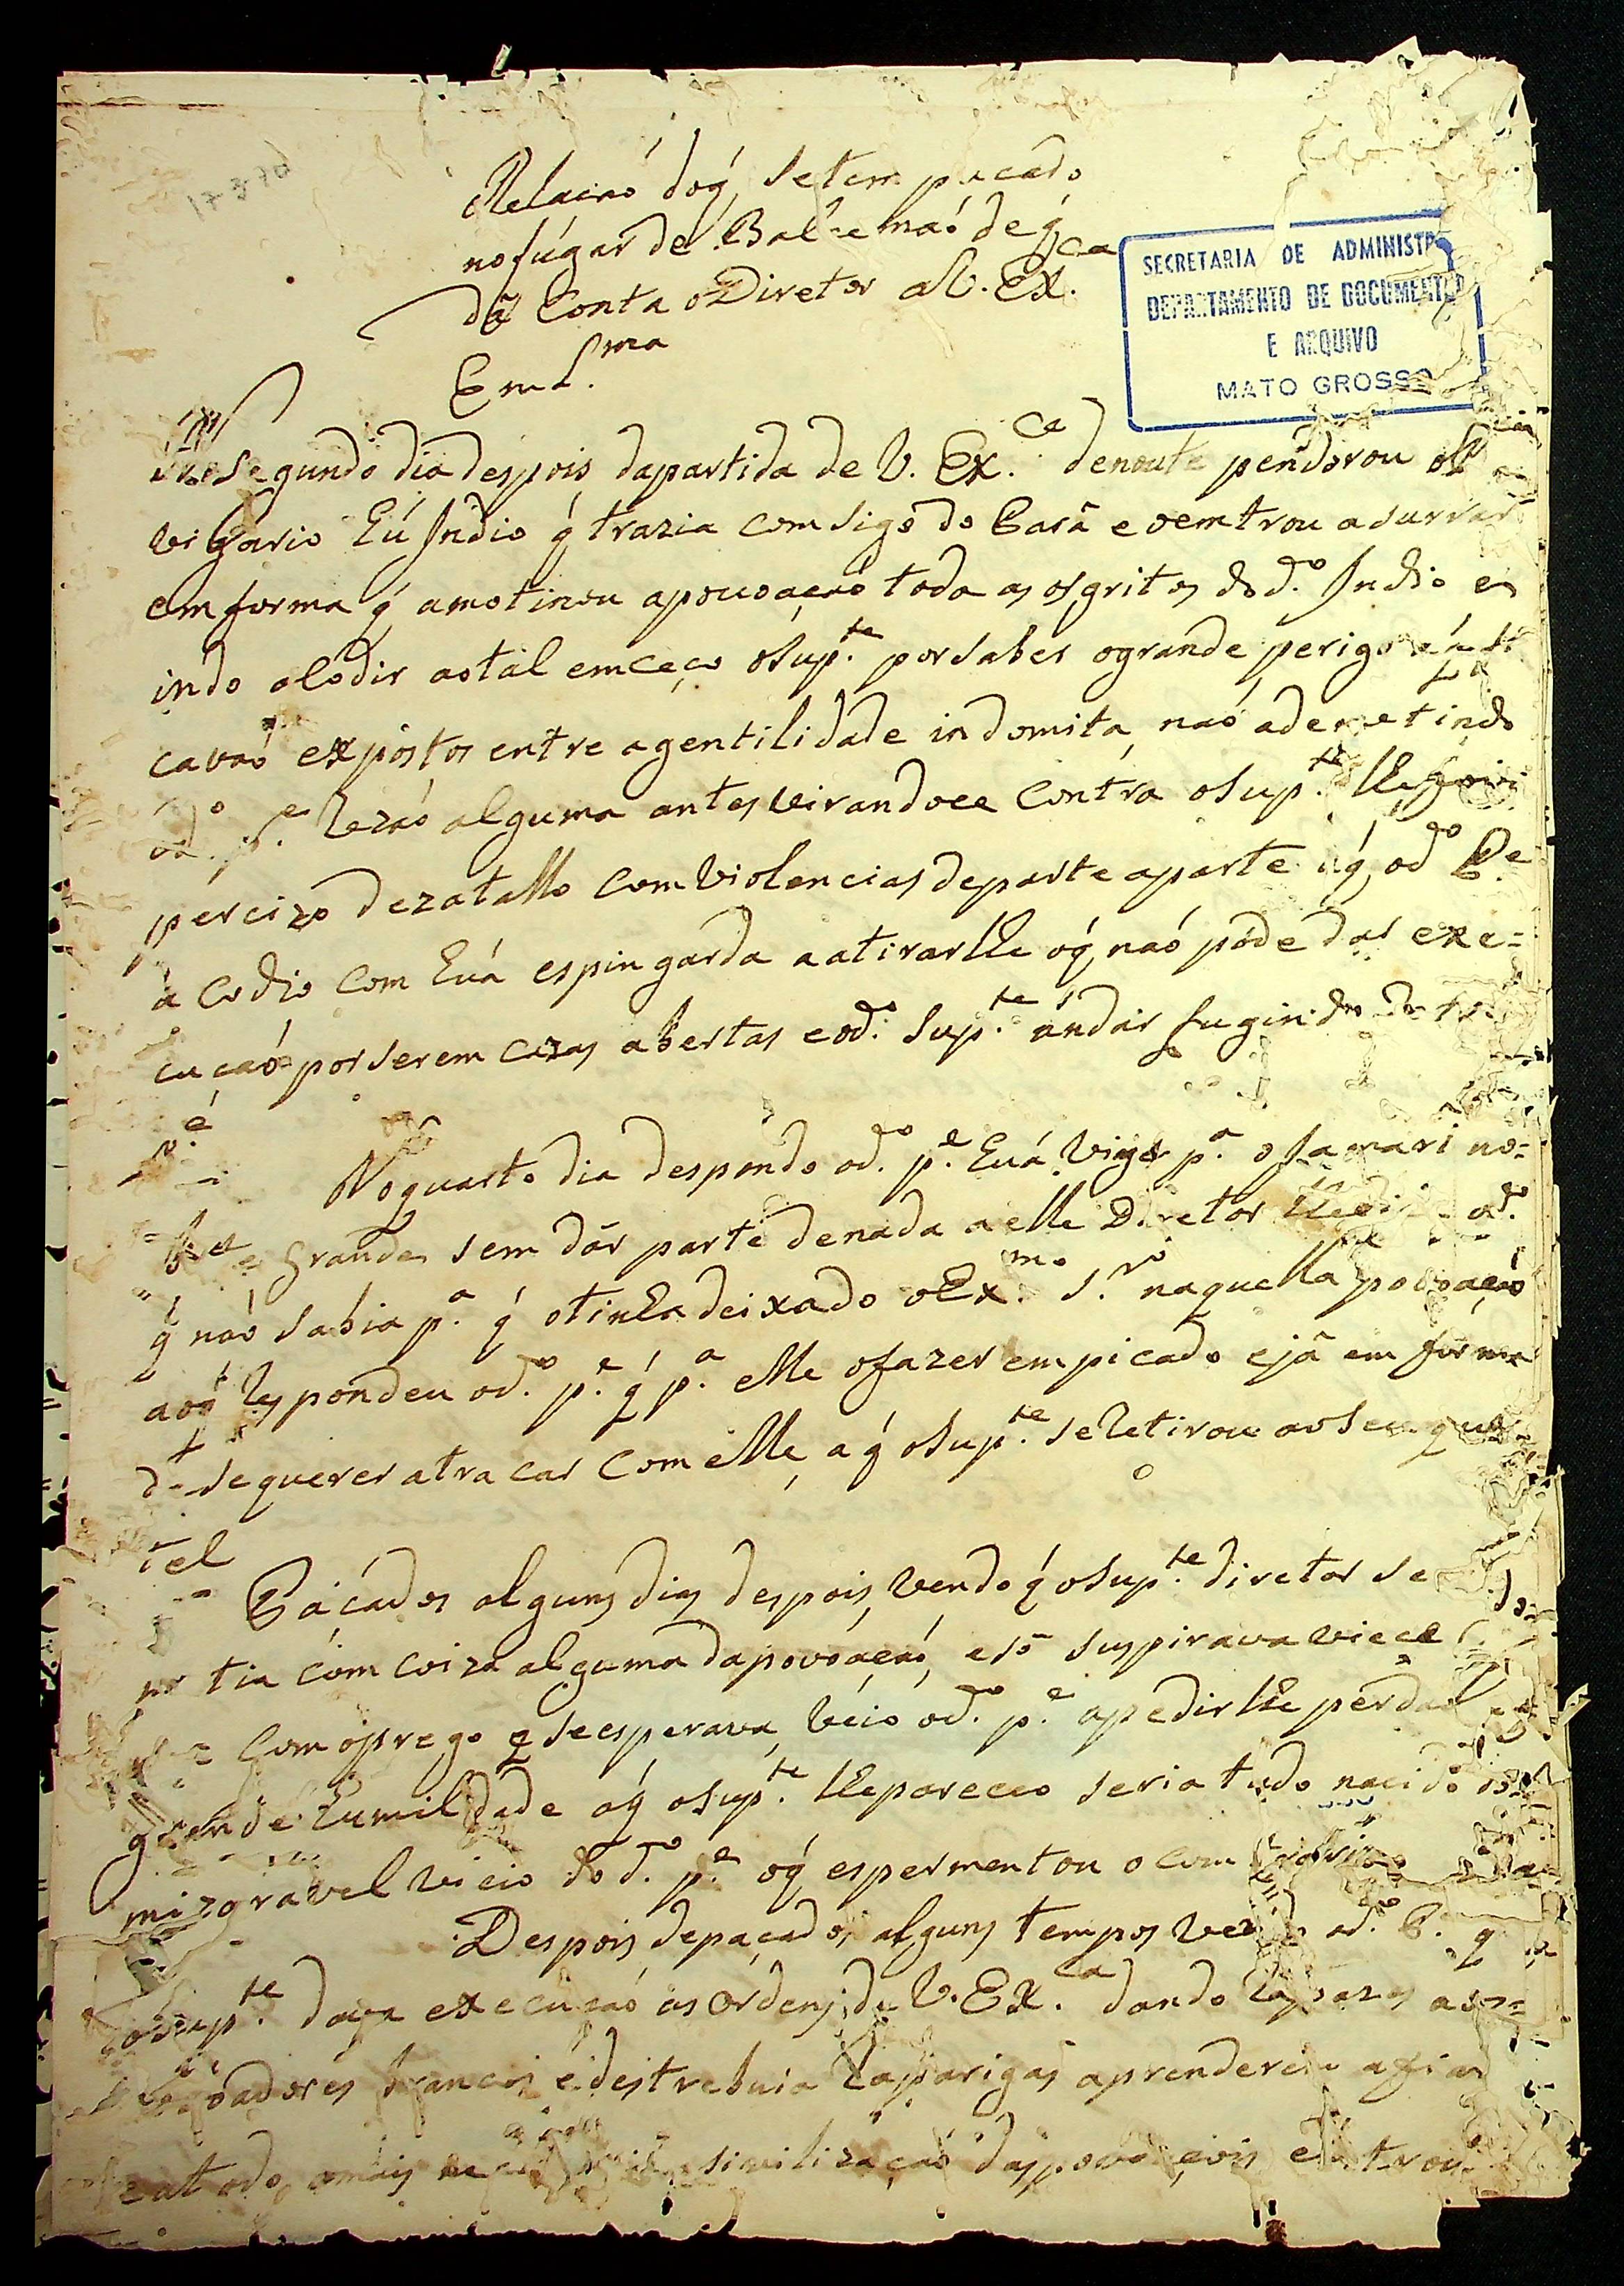 Relacaó doq́ Setem pacado
no lugar de Balcemaó de q́
dá Conta o Diretor a V. Ex.ca
Em L.ma
SECRETARIA DE ADMINIST
DEPARTAMENTO DE DOCUMENTO
E ARQUIVO
MATO GROSSO
17-3-70
segundo dia despois dapartida de V. Ex.ca denoute pendorou o
vigario hú Indio q́ trazia comsigo do Pará e oemtrou a surrar
em forma q́ amotinou apouoaçaó toda aos gritos do d.o Indio e
indo a lodir aotal emceço o Sup.te por saber ogrande perigo
cavaó expostos entre agentilidade indomita, naó ademetindo
od.o p.e Rezaó alguma antes virandoce Contra o Sup.te lhe foi
percizo dezatallo com Violencias departe aparte od.o P.e
a Codio Com huá espingarda aatirarlhe oq́ naó póde dar exe=
cucaó por serem cazas abertas eod.o Sup.te andar fugindo
Noquarto dia despondo od.o p.e huá viage p.a o Jamari no=
grande, sem dár parte denada aelle Diretor od.o
q́ naó sabia p.a q́ otinha deixado oEx.mo S.r naquella povoaçaó
aoq́ Respondeu od.o p.e q́ p.a elle ofazer em picado ejá em forma
de se querer atracar Com elle, aq́ o Sup.te se Retirou ao Seu quar
tel
Pácados alguns dias despois, Vendo q́ o Sup.te diretor se
tia com coiza alguma dapovoaçaó, esó suspirava viece
Com o prego q se esperava, Veio od.o p.e apedirlhe perdaó
grande humildade oq́ o Sup.te lhepareceo seria tudo nacido
mizeravel vicio do d.o p.e oq́ espermentou o com
Despois depaçados alguns tempos Vendo od.o P. q
o Sup.te dava execuçaó as Ordens de V. Ex.ca dando Rapazes aos
oadores brancos édestrebuia Raparigas aprenderem a fiar
atodo, omais sivilizaçaó daspovoaçois, entrou